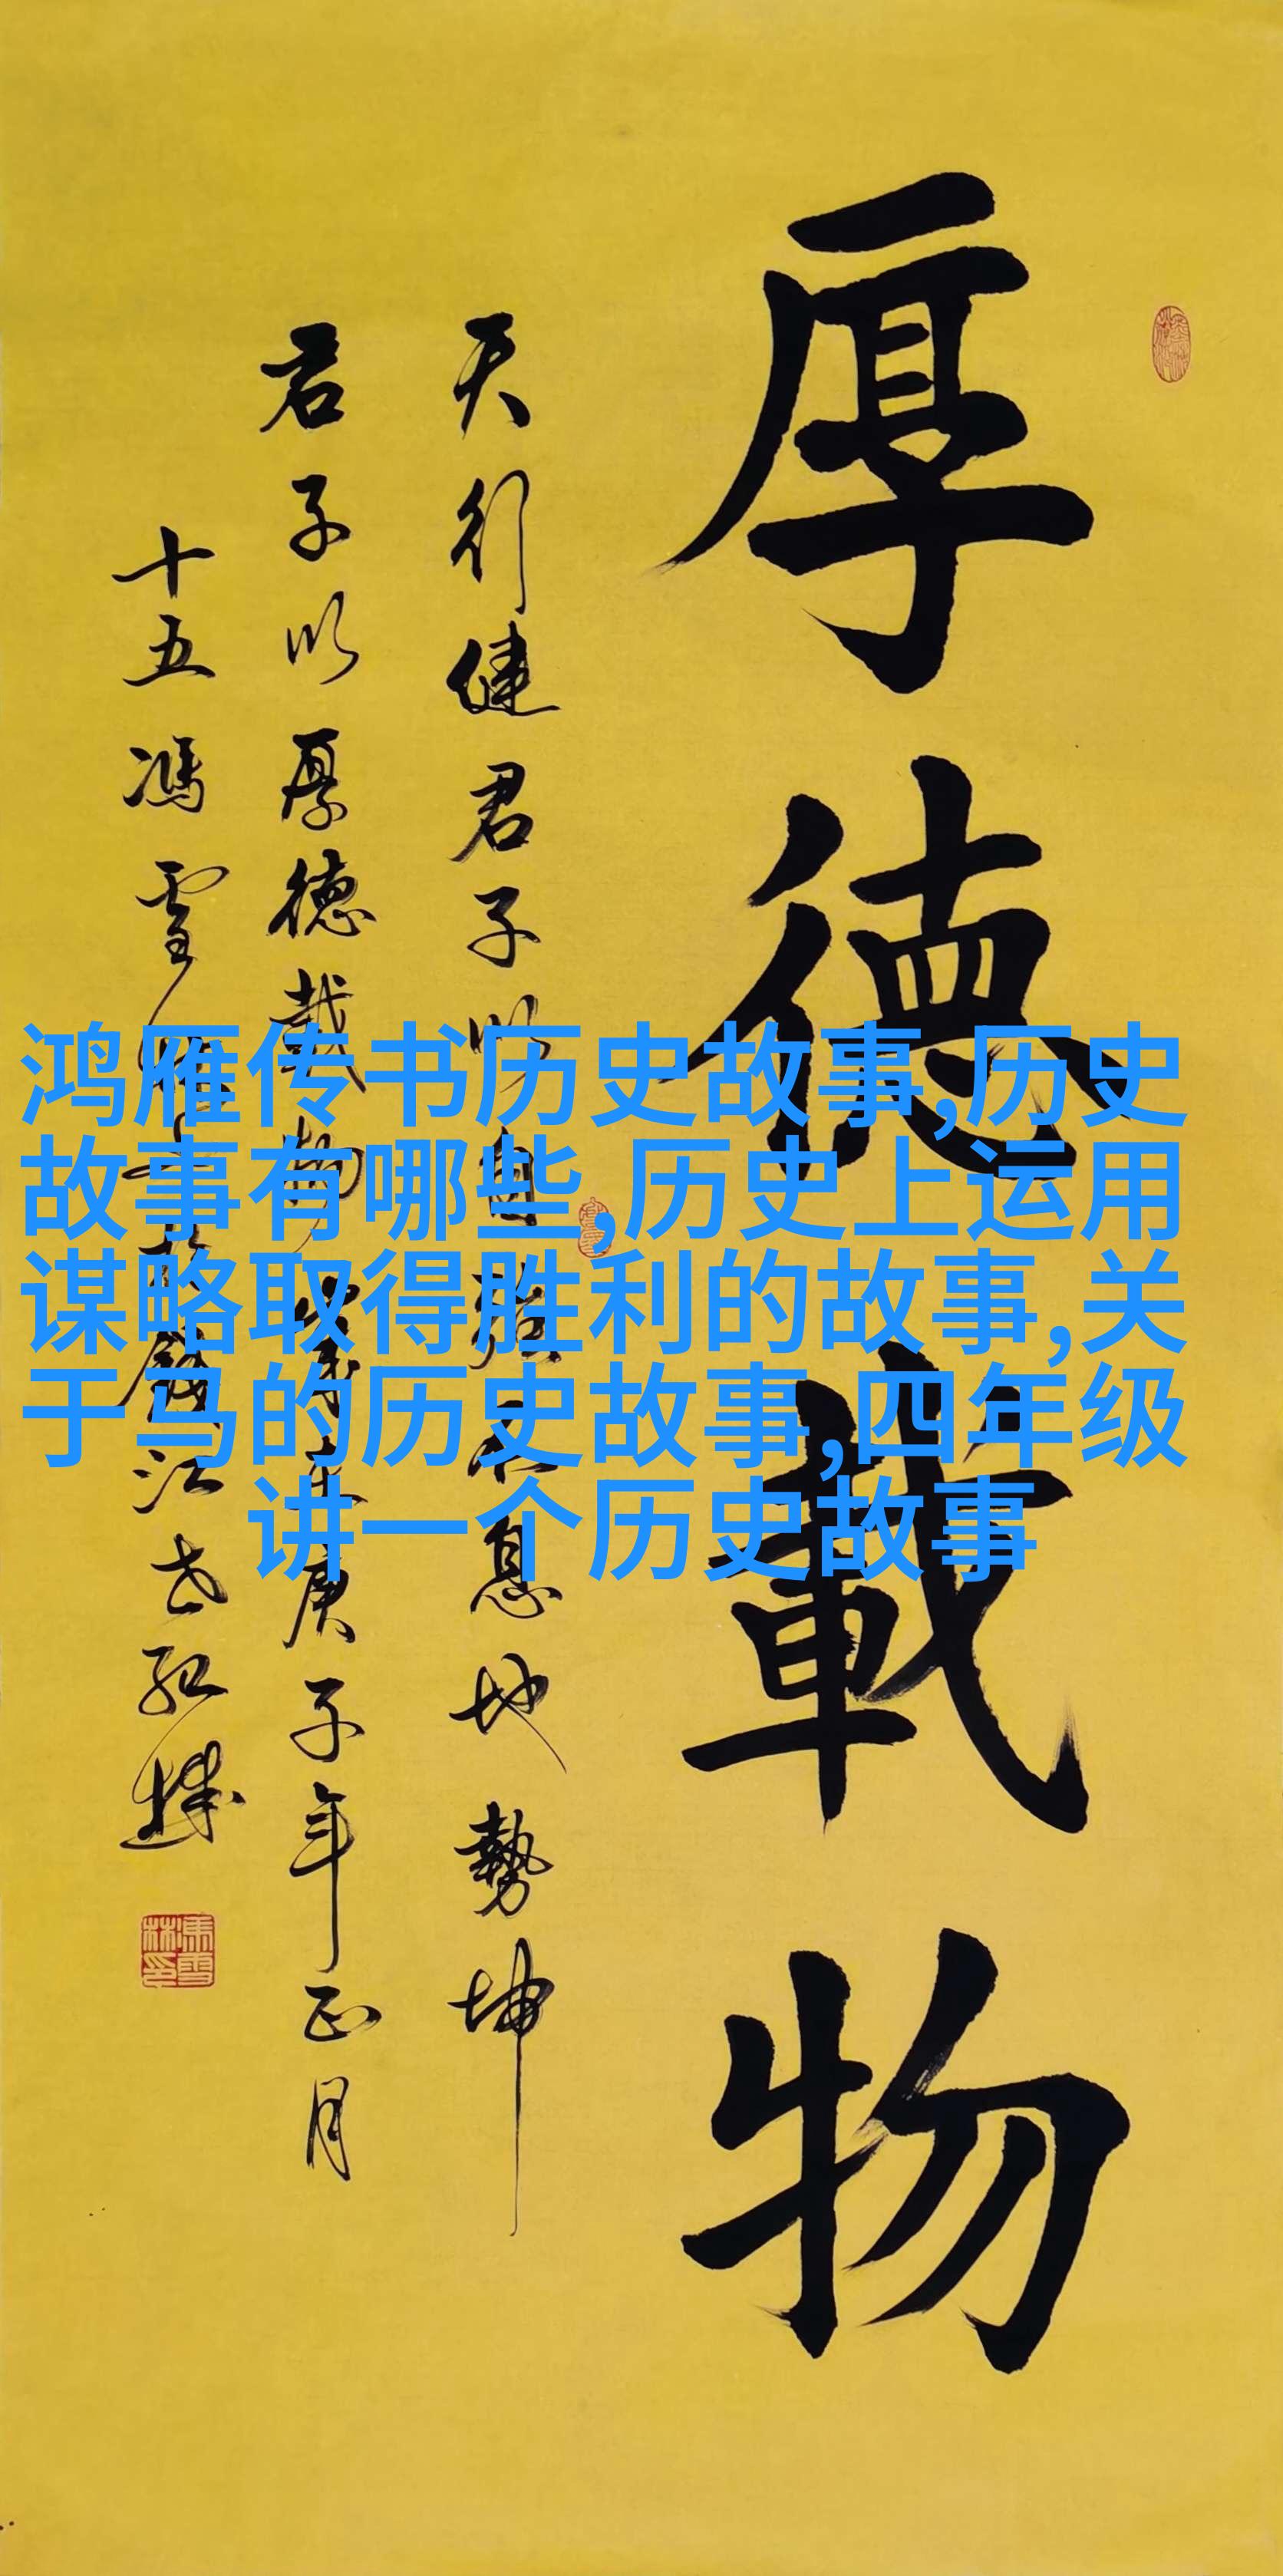 厚德載物
天行健君子以自強不息地勢坤
君子以厚德載物 庚子年正月
十五馮雪林
鸿雁传书历史故事,历史
故事有哪些,历史上运用
谋略取得胜利的故事,关
于马的历史故事,四年级
讲一个历史故事
馮雪林印